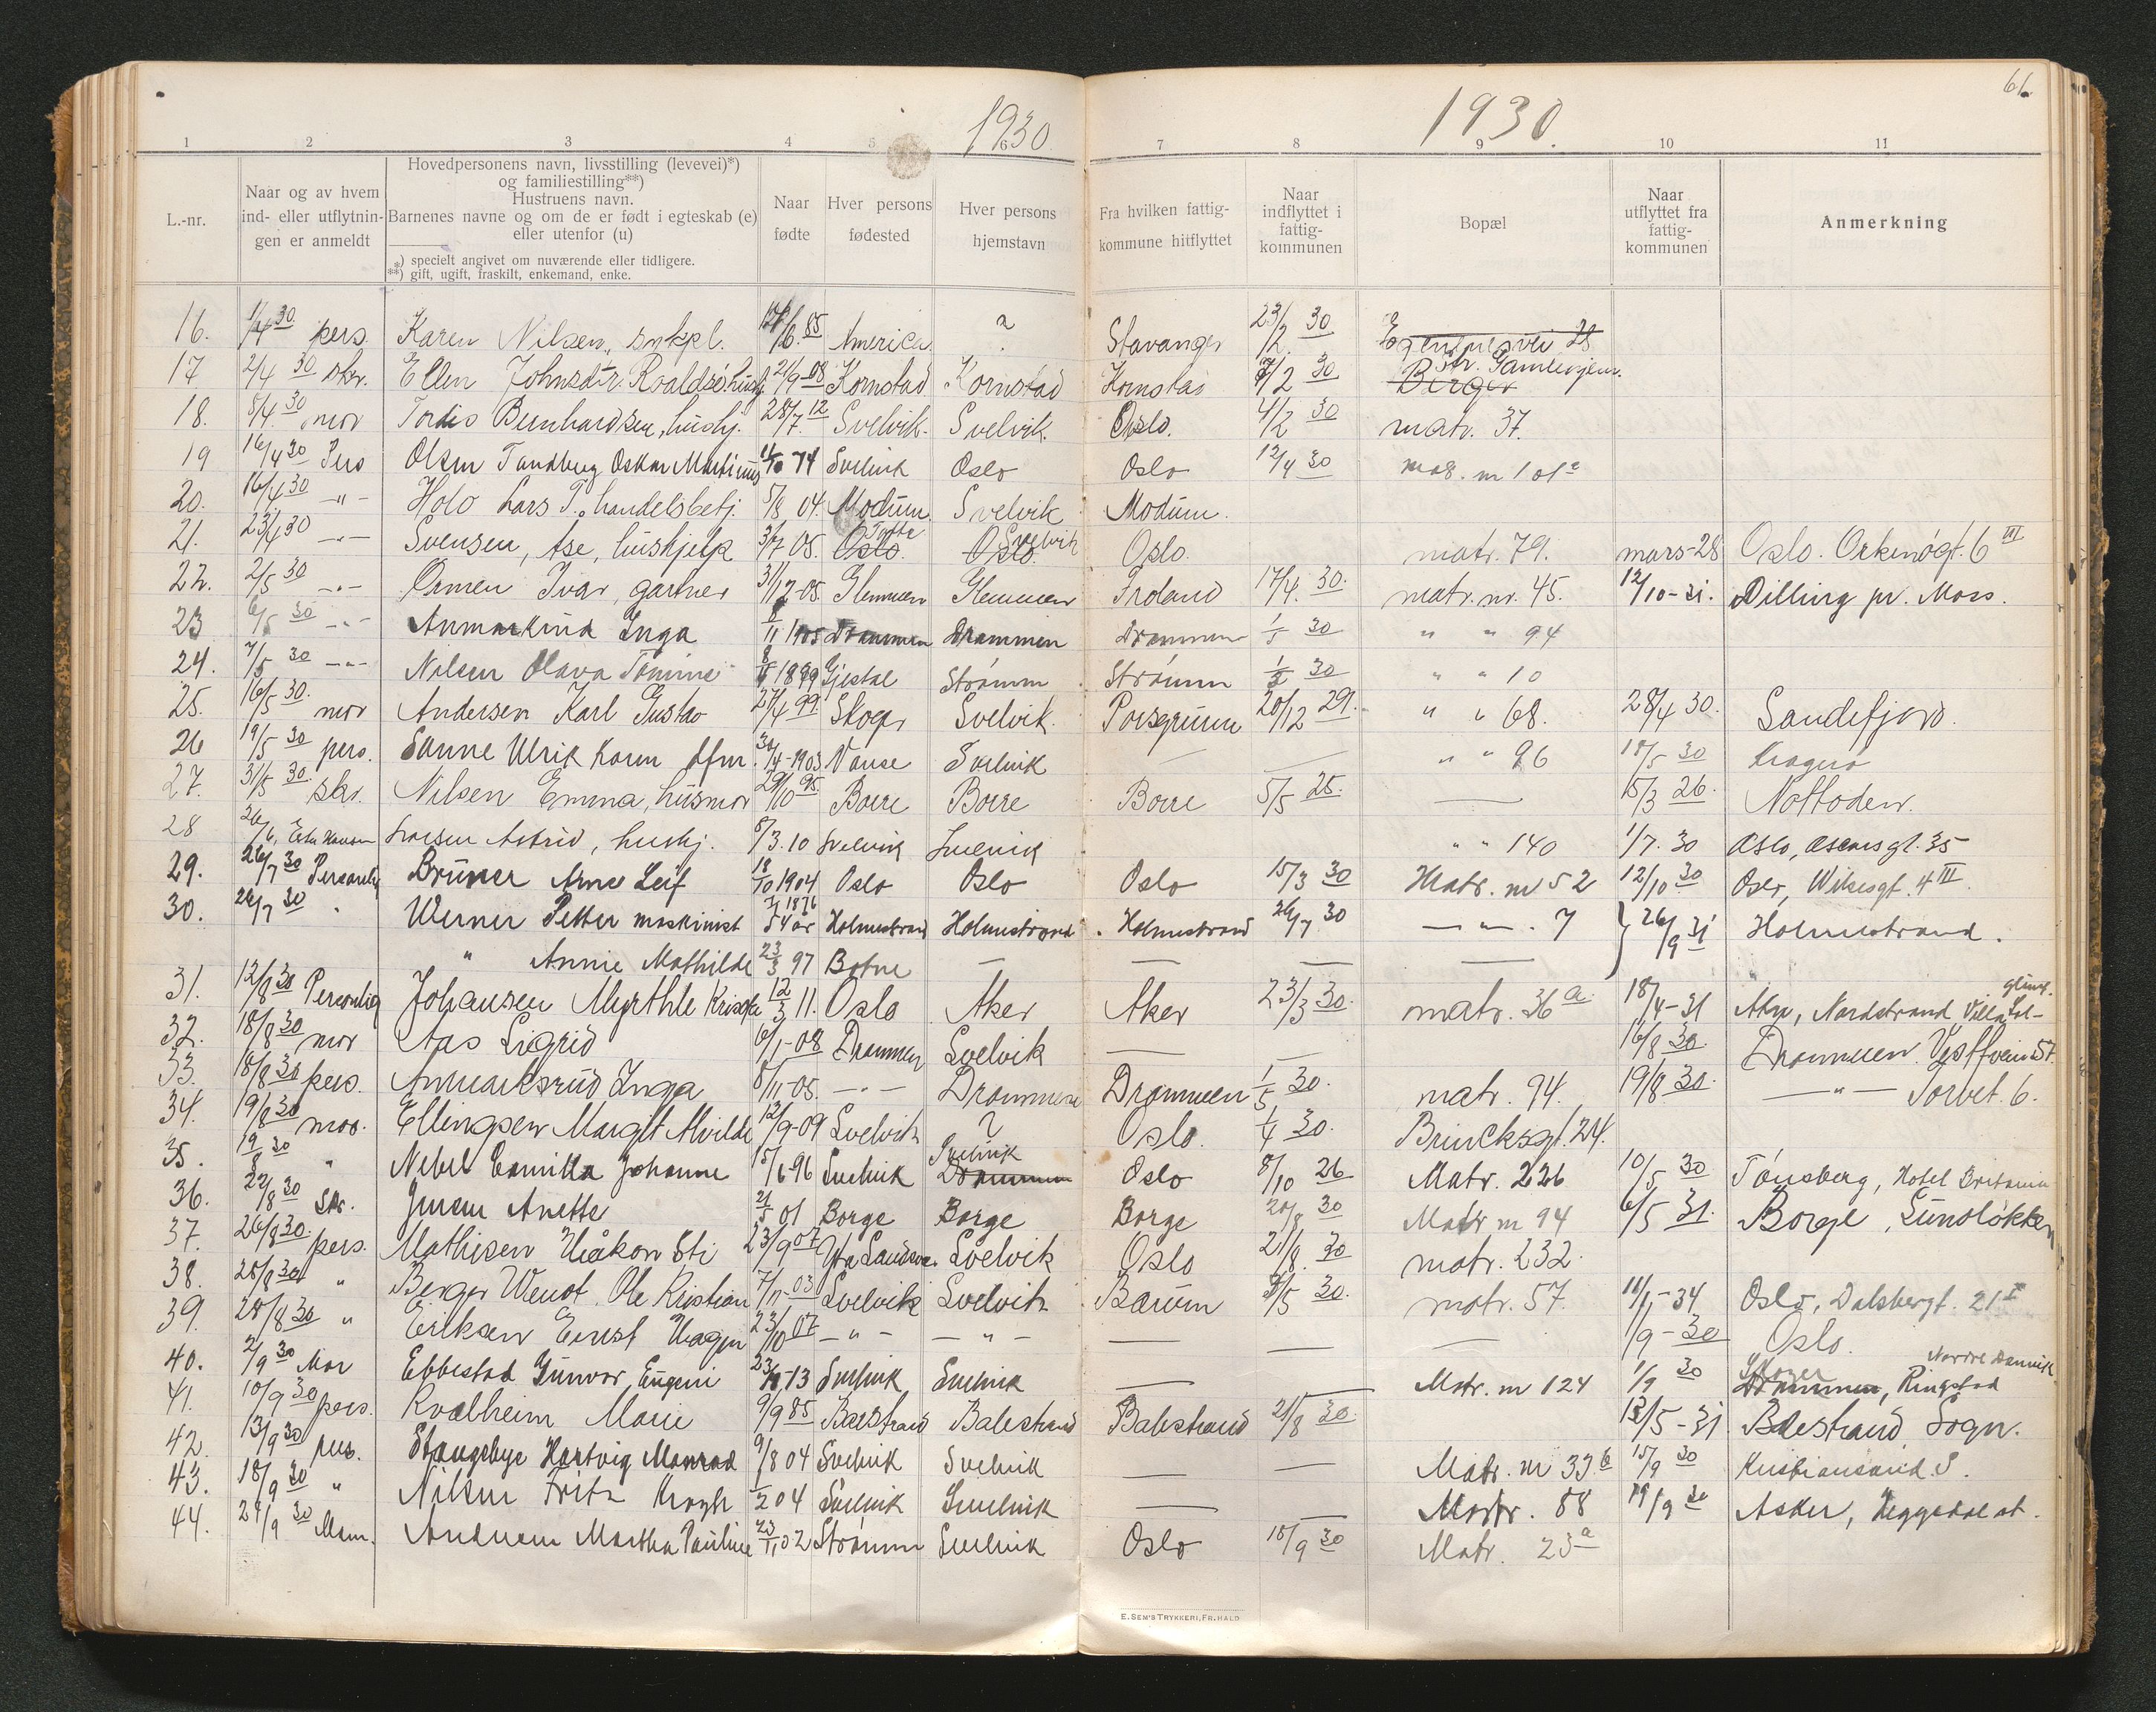 1930
1930.
61.
1 2 3 4 5 6 7 8 9 10 11
L.-nr.
Naar og av hvem
ind- eller utflytnin-
gen er anmeldt
Hovedpersonens navn, livsstilling (levevei)*)
og familiestilling**)
Hustruens navn.
Barnenes navne og om de er født i egteskab (e)
eller utenfor (u)
*) specielt angivet om nuværende eller tidligere.
**) gift, ugift, fraskilt, enkemand, enke.
Naar
fødte
Hver persons
fødested
Hver persons
hjemstavn
Fra hvilken fattig-
kommune hitflyttet
Naar
indflyttet i
fattig-
kommunen
Bopæl
Naar
utflyttet fra
fattig-
kommunen
Anmerkning
16. 1/4 30 pers. Karen Nilsen, sykpl. /6.85 America ? Stavanger 23/2. 30
17 2/4 30 skr. Ellen Johnsdtr. Roaldsø hush. 21/9-08 Kornstad Kornstad Kornstad /2 30 Berger Str. Gamlehjem.
18. 8/4.30 mor Tordis Bernhardsen, hushj. 28/7.12 Svelvik. Svelvik. Oslo. 4/2 30 matr. 37.
19 16/4 30 Pers Olsen Tandberg Oskar Martinius 11/10 74 Svelvik Oslo Oslo 12/4 30
20. 16/4 30 -"- Holo Lars T., handelsbetj. 5/8 04. Modum. Svelvik Modum.
21. 23/4 30 -"- Svensen, Åse, hushjelp 3/7 05. Oslo. Tofte Oslo. Svelvik Oslo. matr. 79. mars-28 Oslo. Orknøgt. 6 III
22. 2/5 30 -"- Ormen Ivar, gartner 31/12-05. Glemmen Glemmen Froland 17/4. 30. matr. nr. 45. 12/10-31. Dilling pr. Moss.
23 6/5 30 -"- Anmarkrud Inga 8/11 1905 Drammen Drammen Drammen 1/5 30 " " 94
24. 7/5 30 -"- Nilsen Olava Tomine 1899 Gjestal Strømm Strømm 1/5 30 " " 10
25. 16/5 30. mor Andersen Karl Gustav 27/4 99. Skoger Svelvik. Porsgrunn 20/12 29. " " 68. 28/4 30. Sandefjord.
26 19/5 30 pers. Sanne Ulrik Korm 30/4-1903 Vanse Svelvik — — " " 96 18/5 30 Kragerø
27. 31/5 30. skr. Nilsen Emma, husmor 29/10 95 Borre Borre Borre 5/5 25. — 15/3 26. Notodden.
28 26/6, Larsen Astrid, hushj. 8/3.10 Svelvik Svelvik " " 140 1/7. 30 Oslo, Osearsgt. 35
29. 26/7 30 Personlig Brüner Arne Leif 18/10 1904 Oslo Oslo Oslo 15/3 30 Matr. nr 52 12/10 30 Oslo, Wilsesgt. 4 III.
30. 26/7 30 " Werner Petter maskinist 1876 54 år Holmestrand Holmestrand Holmestrand 26/7 30 — " — . 7 26/9 31 Holmestrand.
" Annie Mathilde 23/3 97 Botne — — — —
31. 12/8 30 Personlig Johansen Myrthle 12/3 11. Oslo Aker Aker 23/3 30. matr. 36 a. 18/4-31 Aker, Nordstrand Villa Sol-
glimt.
32. 18/8 30 mor Aas Sigrid 6/1-08 Drammen Svelvik — — 16/8 30. Drammen.
33. 18/8 30 pers. Anmarksrud Inga 8/11-05. — " — Drammen Drammen 1/5 30. matr. 94. 19/8 30. — " — Torvet 6.
34. 19/8 30 mor. Ellingsen Margit Alvilde 12/9-09 Svelvik ? Oslo. 1/4 30. Brincksgt. 24.
35. 19/8 30 " Nebel Camilla Johanne 15/6 96 Svelvik Svelvik Drammen Oslo 8/10 26 Matr. 226 10/5 30 Tønsberg, Hotel Britania
36. 22/8 30 Skr. Jensen Anette 21/5 01 Borge Borge Borge 20/8 30 Matr nr 94 6/5 31. Borge, Sundløkken
37. 26/8 30. pers. Mathisen Håkon Sti 23/9 07 Svelvik Oslo 21/8. 30 matr. 232.
38. 28/8 30 " Berger Wendt Ole Kristian 7/11-03 Svelvik Svelvik Bærum /5 30. matr. 57. 11/1-34 Oslo, Dalsbergt. 21 I
39. 28/8 30 " Eriksen Ernst Hagen 23/10 07 — " — — " — — — 1/9-30 Oslo.
40. 2/9 30 Mor Ebbestad Gunvor Eugeni 23/ -13 Svelvik Svelvik — — Matr. nr 124 1/9 30 Skoger Drammen, Ringstad
Nordre Danvik
41. 10/9 30 pers. Kvalheim Marie 9/9 85 Balestrand Balestrand Balestrand 21/8 30. /5-31 Balestrand Sogn.
42. 13/9 30 pers. Stangebye Hartvig Monrad 9/8 04 Svelvik Svelvik — — Matr. nr 33 b 15/9 30 Kristiansand. S.
43. 18/9 30 " Nilsen Fritz Krogh /2 04 Svelvik Svelvik — — Matr. 88 19/9 30 Asker, Heggedal st.
44. 27/9 30 Mor. Andersen Martha Pauline 23/11 02 Strømm Svelvik Oslo 15/9 30 Matr. 23 a
E. SEM'S TRYKKERI, FR.HALD